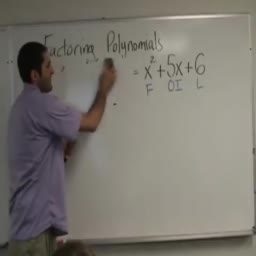 Factoring Polynomials
= x² + 5x + 6
F OI L